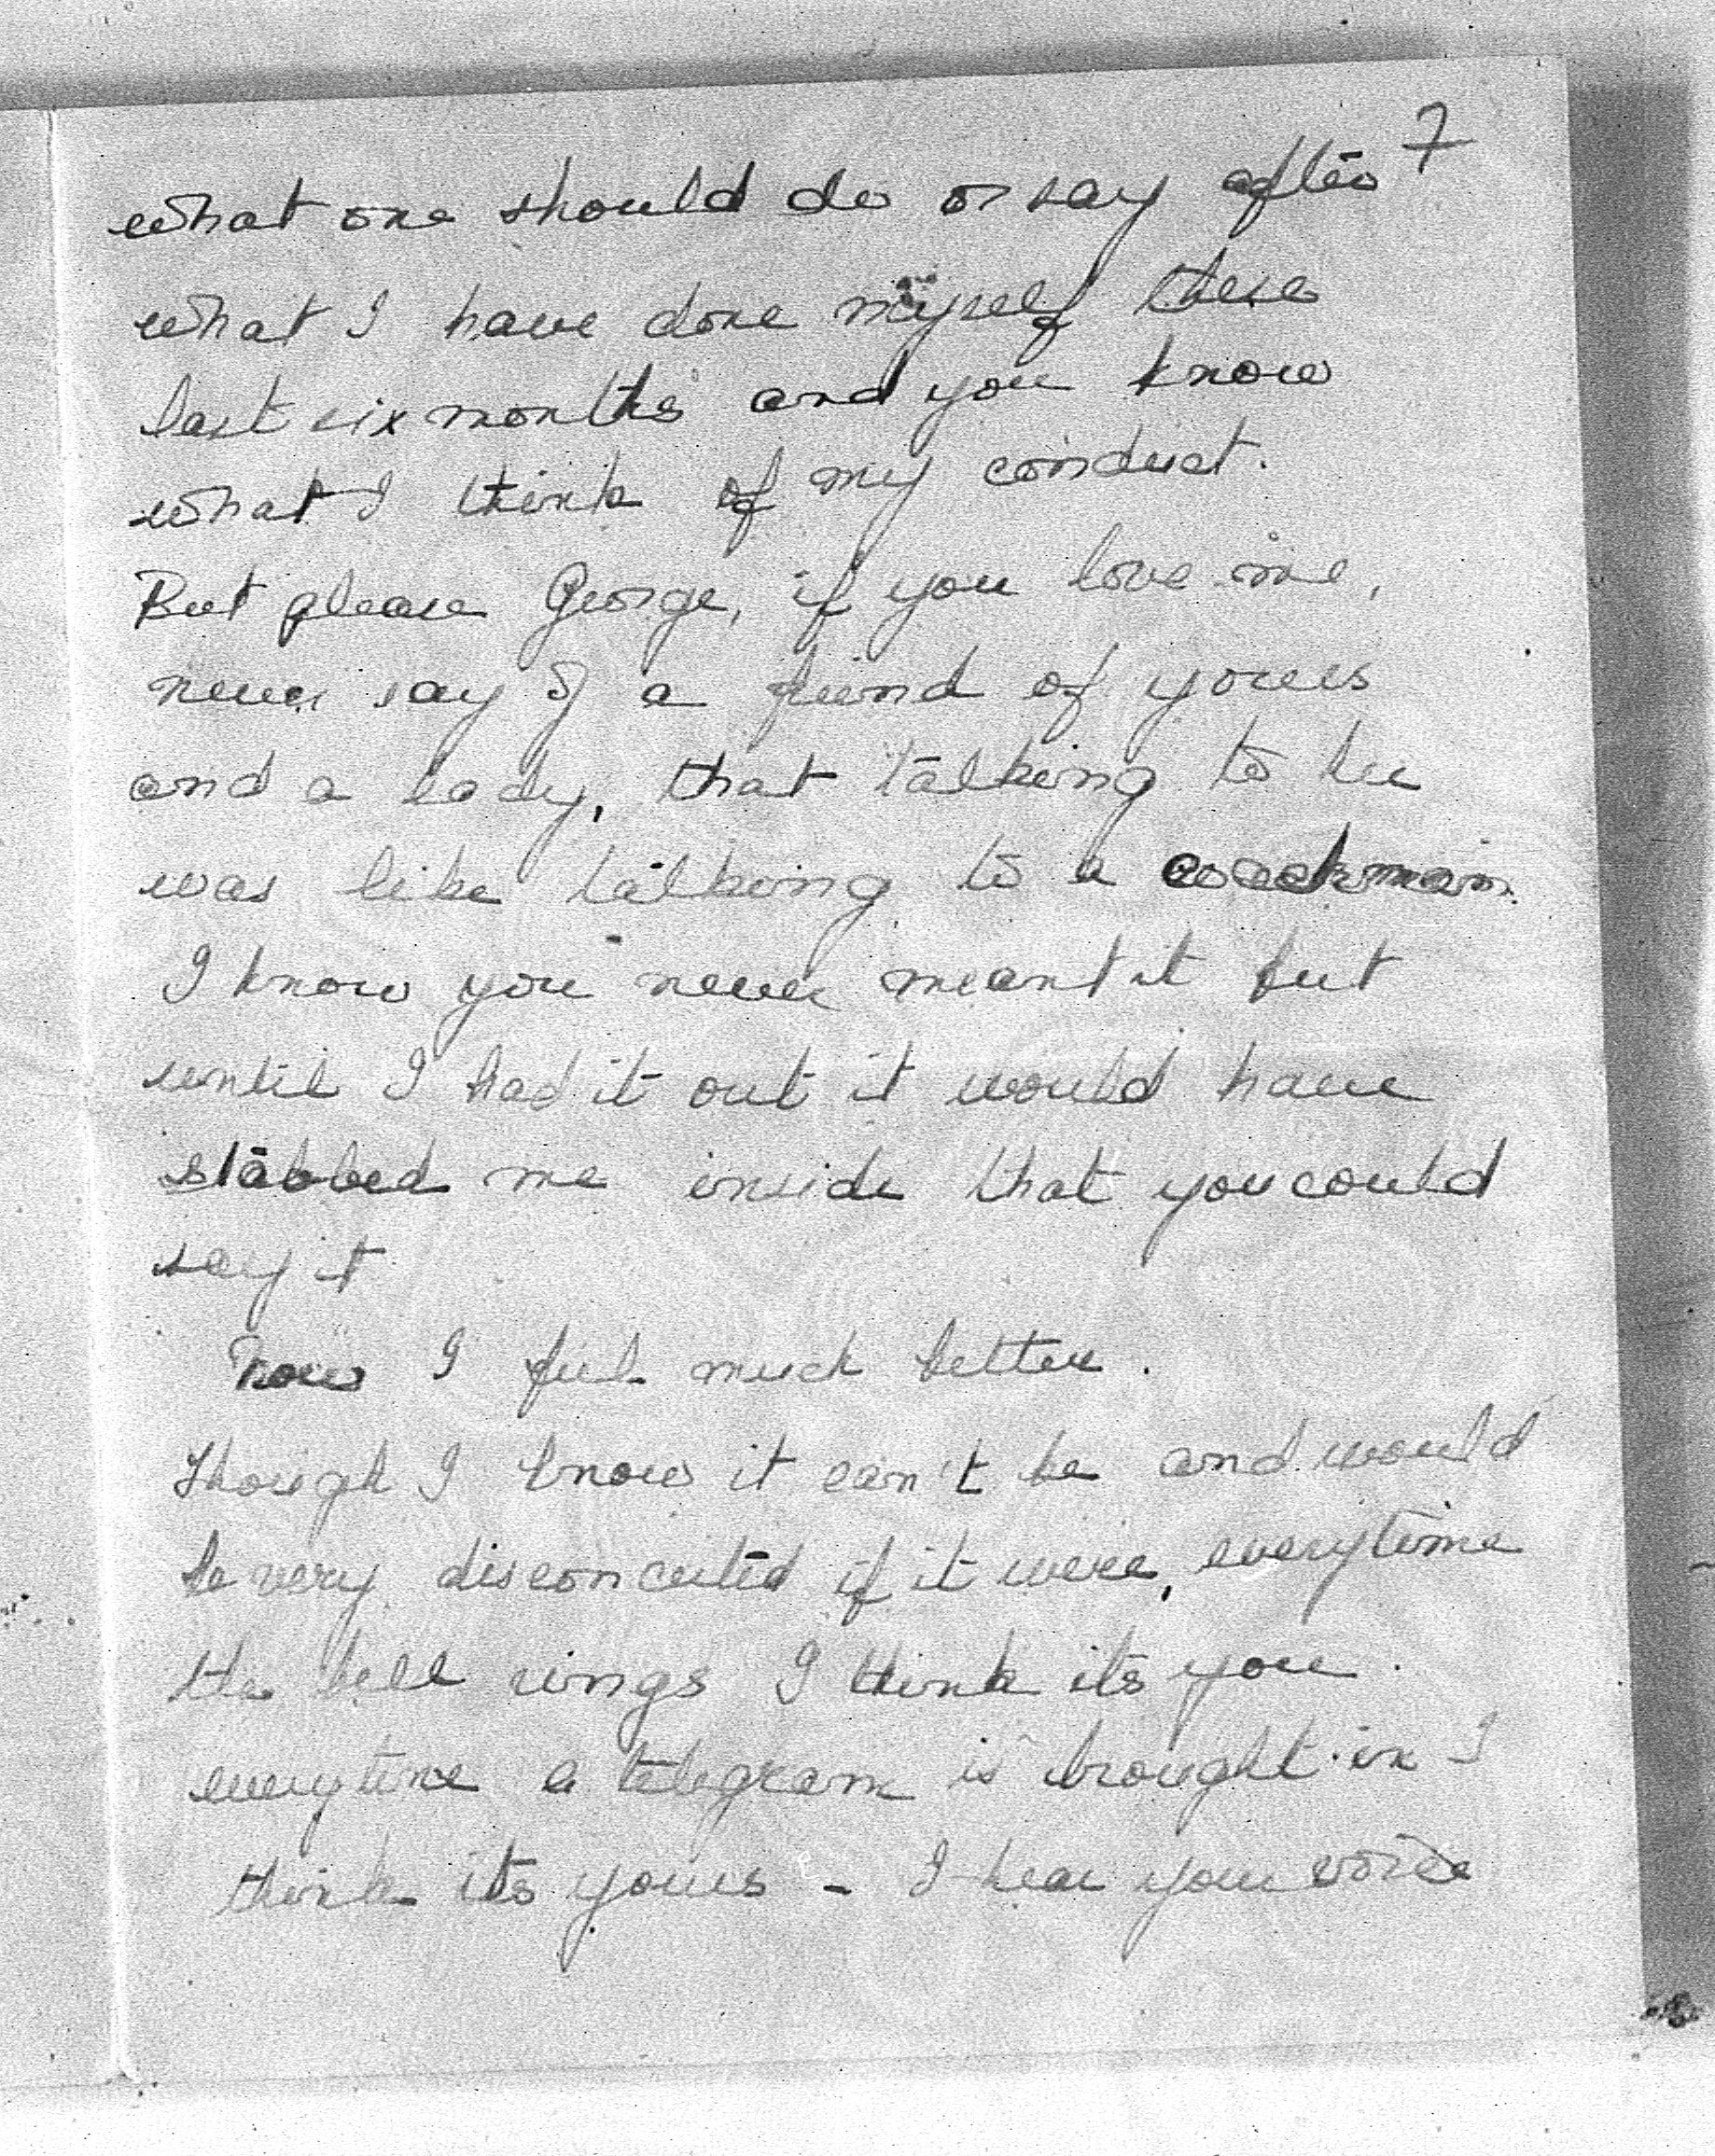 7
what one should do or say after
what I have done myself these
last six months and you know
what I think of my conduct.
But please George, if you love me,
never say of a friend of yours
and a lady, that talking to her
was like talking to a coachman.
I know you never meant it but
until I had it out it would have
stabbed me inside that you could
say it
Now I feel much better.
Though I know it can't be and would
be very disconcerted if it were, everytime
the bell rings I think its you.
everytime a telegram is brought in I
think its yours - I hear your voice